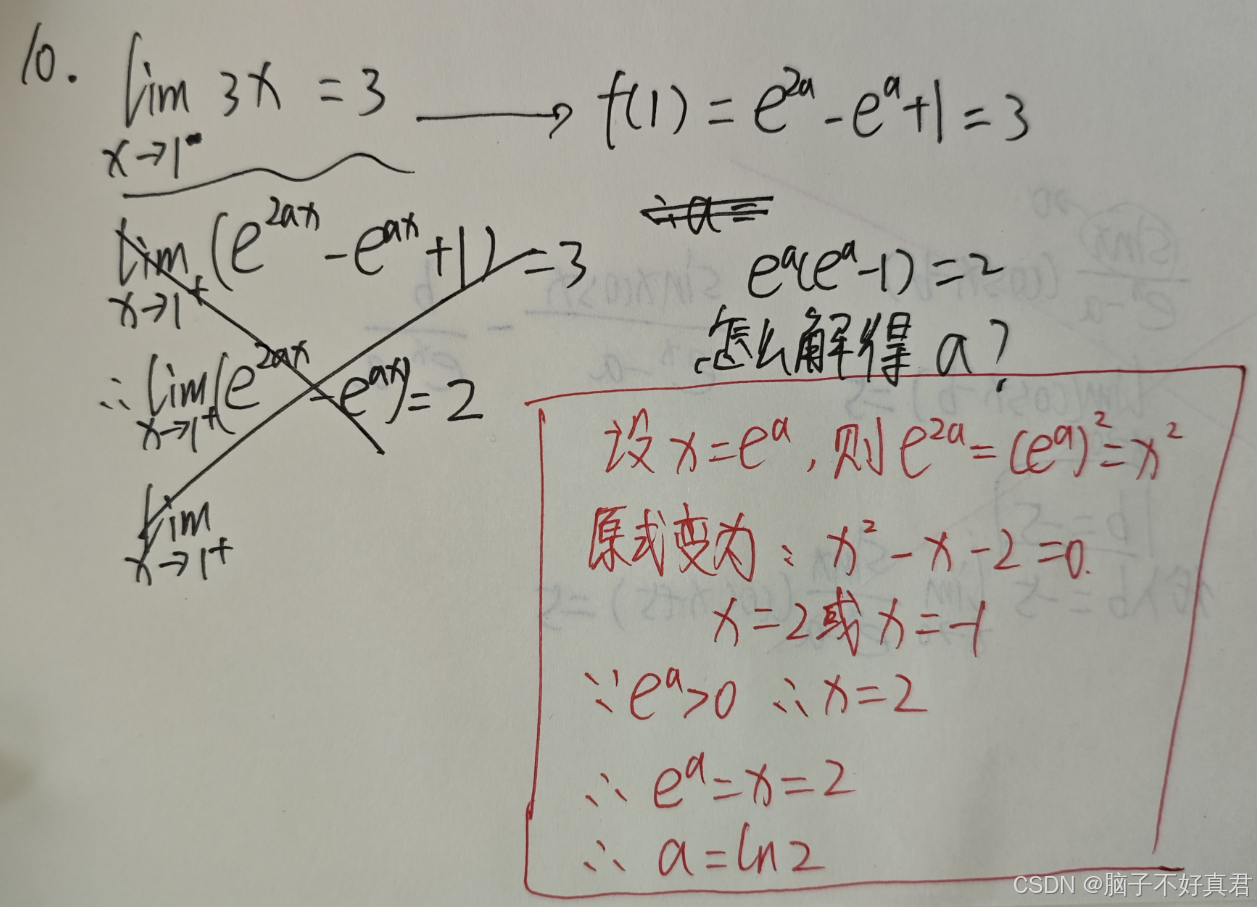 10. lim 3x = 3 → f(1) = e^{2a} - e^a + 1 = 3
x→1⁻
lim (e^{2ax} - e^{ax} + 1) = 3
x→1⁺
∴ lim (e^{2ax} - e^{ax}) = 2
x→1⁺
lim
x→1⁺
∴a=
e^a(e^a - 1) = 2
怎么解得 a?
设 x = e^a, 则 e^{2a} = (e^a)^2 = x^2
原式变为: x^2 - x - 2 = 0.
x = 2 或 x = -1
∵ e^a > 0 ∴ x = 2
∴ e^a = x = 2
∴ a = ln2
CSDN @脑子不好真君